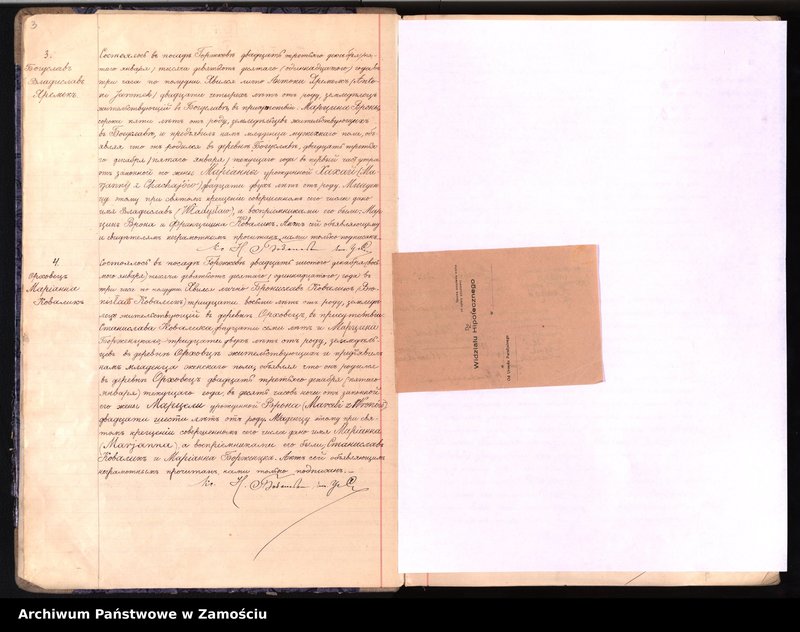 3
3.
Богуславъ
Владиславъ
Хремекъ.
Состоялось въ посадѣ Горжковъ двадцать третьяго декабря /пя-
таго января/ тысяча девятьсотъ десятаго /одиннадцатаго/ года въ
три часа по полудни. Явился лично Антонъ Хремекъ
двадцати четырехъ лѣтъ отъ роду, земледѣлецъ
жительствующій въ Богуславѣ, въ присутствіи Марцина Врона
сорока пяти лѣтъ отъ роду, земледѣльцевъ жительствующихъ
въ Богуславѣ, и предъявилъ намъ младенца мужескаго пола, объ-
являя что онъ родился въ деревнѣ Богуславъ, двадцать третья-
го декабря /пятаго января/ текущаго года въ первый часъ утра
отъ законной его жены Марианны урожденной Хахай (Ma-
rjanny z Chachajów) двадцати двухъ лѣтъ отъ роду. Младен-
цу этому при святомъ крещеніи совершенномъ сего числа дано
имя Владиславъ (Władysław), а воспріемниками его были: Мар-
цинъ Врона и Францишка Ковалик. Актъ сей объявляющему
и свидѣтелямъ неграмотнымъ прочитанъ, нами только подписанъ.
Кс. Н.
4.
Орховецъ
Маріанна
Коваликъ
Состоялось въ посадѣ Горжковъ двадцать шестаго декабря /вось-
маго января/ тысяча девятьсотъ десятаго /одиннадцатаго/ года въ
три часа по полудни. Явился лично Брониславъ Коваликъ (Bro-
nisław Kowalik) тридцати восьми лѣтъ отъ роду, земледѣ-
лецъ жительствующій въ деревнѣ Орховецъ, въ присутствіи
Станислава Ковалика двадцати семи лѣтъ и Марцина
тридцати двухъ лѣтъ отъ роду, земледѣль-
цевъ въ деревнѣ Орховецъ жительствующихъ и предъявилъ
намъ младенца женскаго пола, объявляя что она родилась
въ деревнѣ Орховецъ двадцать третьяго декабря /пятаго
января/ текущаго года, въ десять часовъ ночи отъ законной
его жены Марцели урожденной Врона (Marceli z Wronów)
двадцати шести лѣтъ отъ роду. Младенцу этому при свя-
томъ крещеніи совершенномъ сего числа дано имя Маріанна
(Marjanna), а воспріемниками его были Станиславъ
Коваликъ и Маріанна. Актъ сей объявляющимъ
неграмотнымъ прочитанъ, нами только подписанъ.
Кс. Н.
Wydziału Hipotecznego
Do
Od Urzędu Parafialnego
Archiwum Państwowe w Zamościu